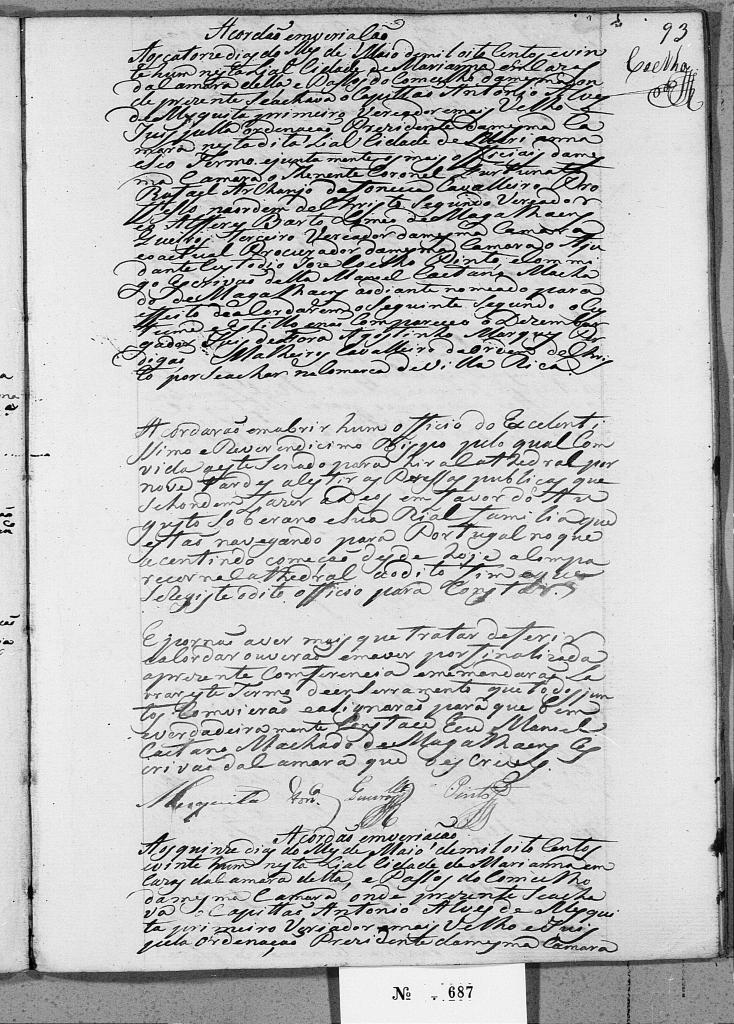 93
Coelho
Acordão emveriação
Aos catorze dias do Mes de Maio de mil oito Centos e vin
te hum nesta Lial Cidade de Marianna em Cazas
da Camara della e Passos do Comcelho da mesma on
de prezente Seachava o Capittão Antonio Alves
de Mesquita primeiro Vereador mais Velho e
Juis pella ordenação Prezidente da mesma Ca
mara nesta dita Lial Cidade de Mari anna
e Seo Termo. ejuntamente os mais officiais da mes
ma Camara o Thenente Coronel Furtunato
Rafael Archanjo da Fonceca Cavalleiro Pro
fesso na ordem de Christo Segundo Vereador
eo Alferes Bartolomeo de Magalhaens
Queiros Terceiro Vereador da mesma Camara
eo actual Procurador da mesma Camara o Aju
dante Custodio Joze Coelho Pinto, e commi
go Escrivão della Manoel Caetano Macha
do de Magalhaens aodiante nomeado para
effeito de aCordarem o Seguinte Segundo o Cus
tume e Estillo enão Compareceo o Dezembar
gador Juis de Fora Agostinho Marques Per
digão Malheiro Cavalleiro da Ordem de Chris
to, por Seachar na Comarca de Villa Rica.
Acordarão em abrir hum officio do Excelenti
ssimo e Reverendicimo Bispo pelo qual Com
vida a este Senado para hir a Cathedral por
nove tardes a Sestir as Pressos publicas que
Sehondem fazer a Deos em favor do Au
gusto Soberano e Sua Rial Familia que
estão navegando para Portugal no que
acentindo começão desde hoje a Compa
recer na Cathedral aodito fim e que
Se Registe odito officio para Constar.
E por não aver mais que tratar deferir
eacordar ouverão emaver por finalizada
a prezente Comferencia emmendarão La
vrar este Termo de enserramento que todos jun
tos Comvierão easignarão para que bem
everdadeiramente Constace Eeu Manoel
Caetano Machado de Magalhaens Es
crivão da Camara que oescrevy.
Mesquita Fonca Queiros Pinto
Acordão emveriação
Aos quinze dias do Mes de Maio de mil oito Centos
e vinte hum nesta Lial Cidade de Marianna em
Cazas da Camara della, e Passos do Comcelho
da mesma Camara onde prezente Seacha
va o Capittão Antonio Alves de Mesqui
ta primeiro Veriador mais Velho e Juis
pela Ordenação Prezidente da mesma Camara
Nº 687